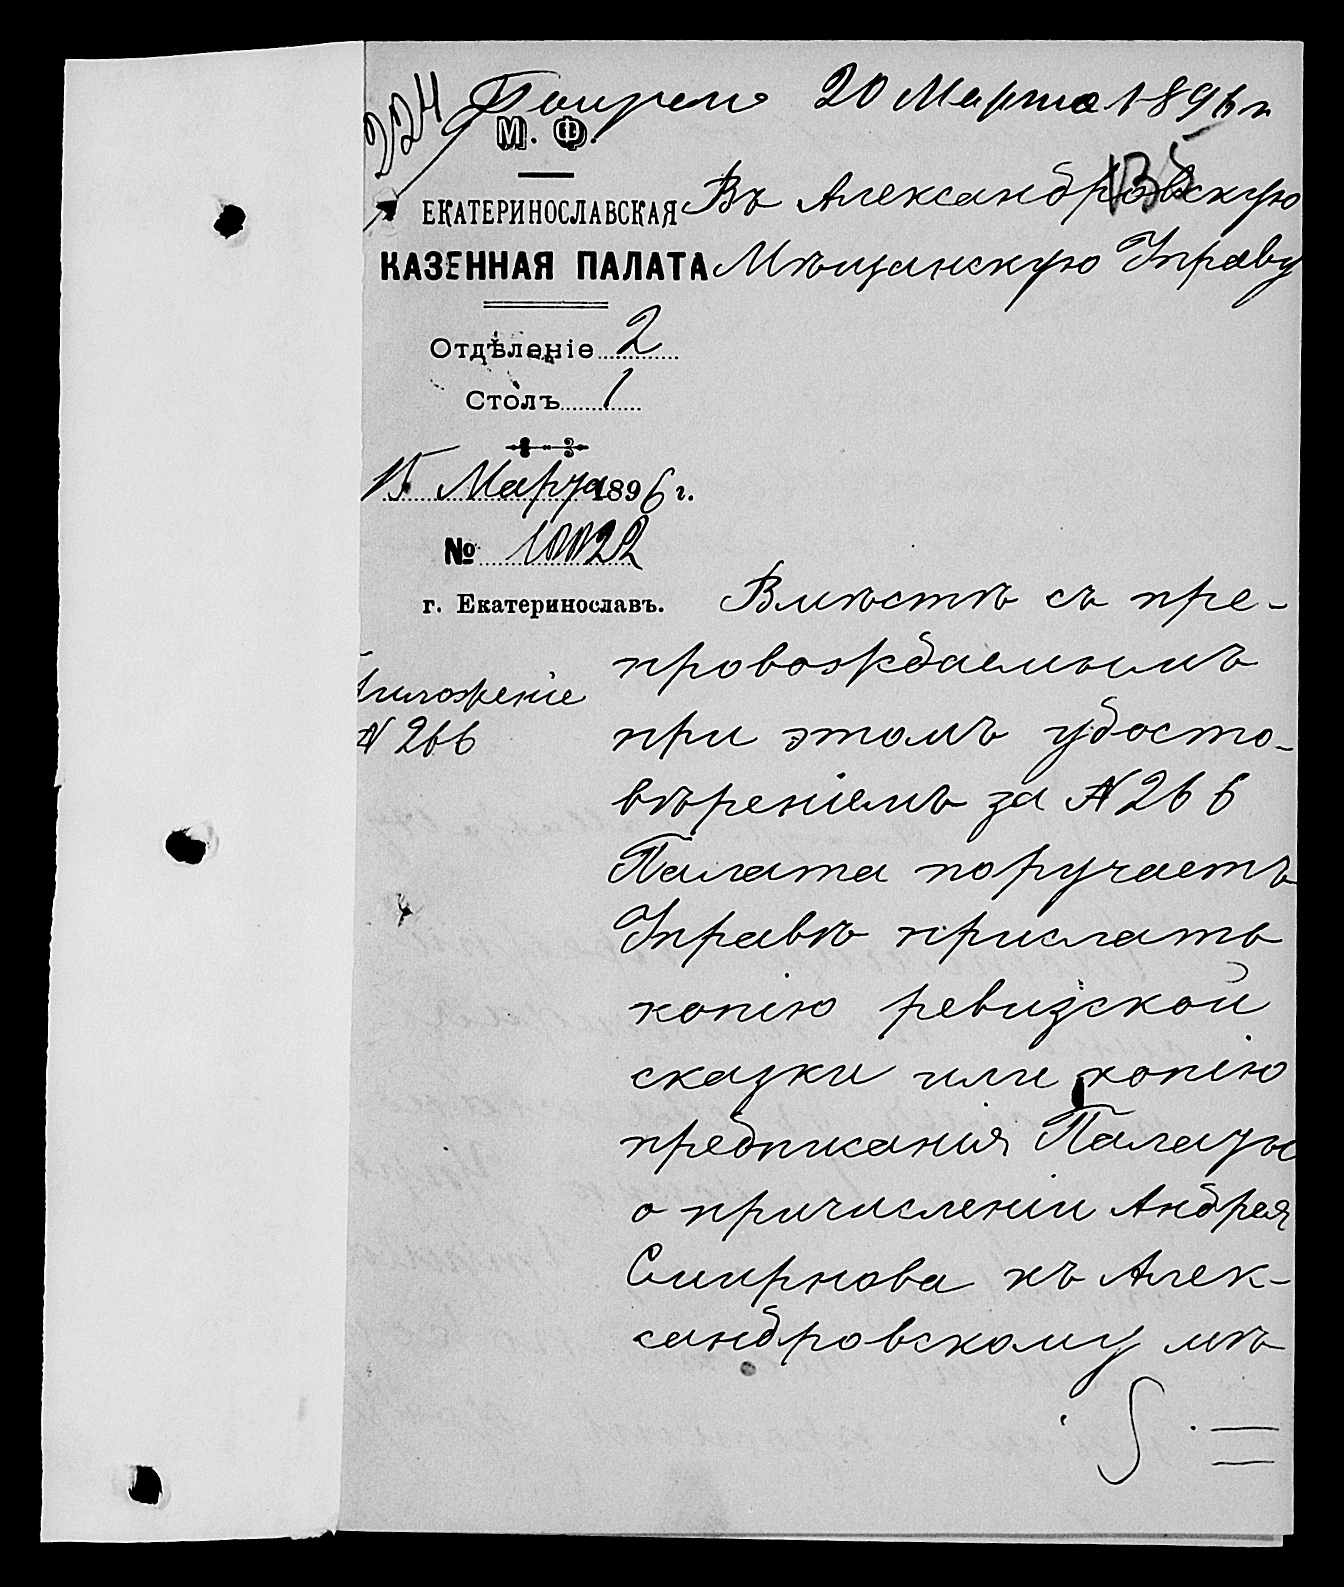 224
Получено 20 Марта 1896 г
135
М. Ф.
ЕКАТЕРИНОСЛАВСКАЯ
КАЗЕННАЯ ПАЛАТА
Отдѣленіе 2
Столъ 1
15 Марта 1896 г.
№ 10022
г. Екатеринославъ.
Приложеніе
№ 266
Въ Александровскую
Мѣщанскую Управу
Вмѣстѣ съ пре-
провождаемымъ
при этомъ удосто-
вѣреніемъ за № 266
Палата поручаетъ
Управѣ прислать
копію ревизской
сказки или копію
предписанія Палаты
о причисленіи Андрея
Смирнова къ Алек-
сандровскому мѣ